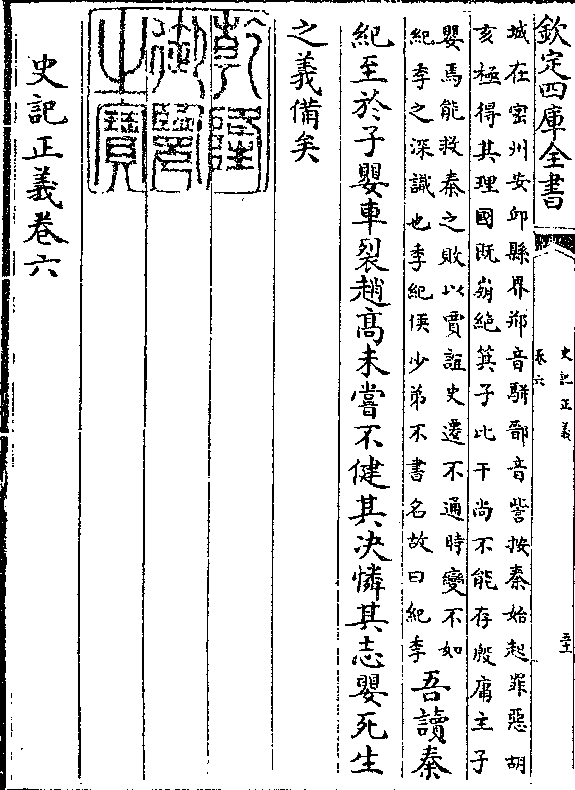 欽定四庫全書
史記正義
卷六
城在密州安邱縣界郱音駢鄑音訾按秦始起罪惡胡
亥極得其理國既崩絶箕子比干尚不能存殷庸主子
嬰焉能救秦之敗以賈誼史遷不通時變不如
紀季之深識也季紀侯少弟不書名故曰紀季
吾讀秦
紀至於子嬰車裂趙高未嘗不健其决憐其志嬰死生
之義備矣
乾隆
御覽
之寶
史記正義卷六